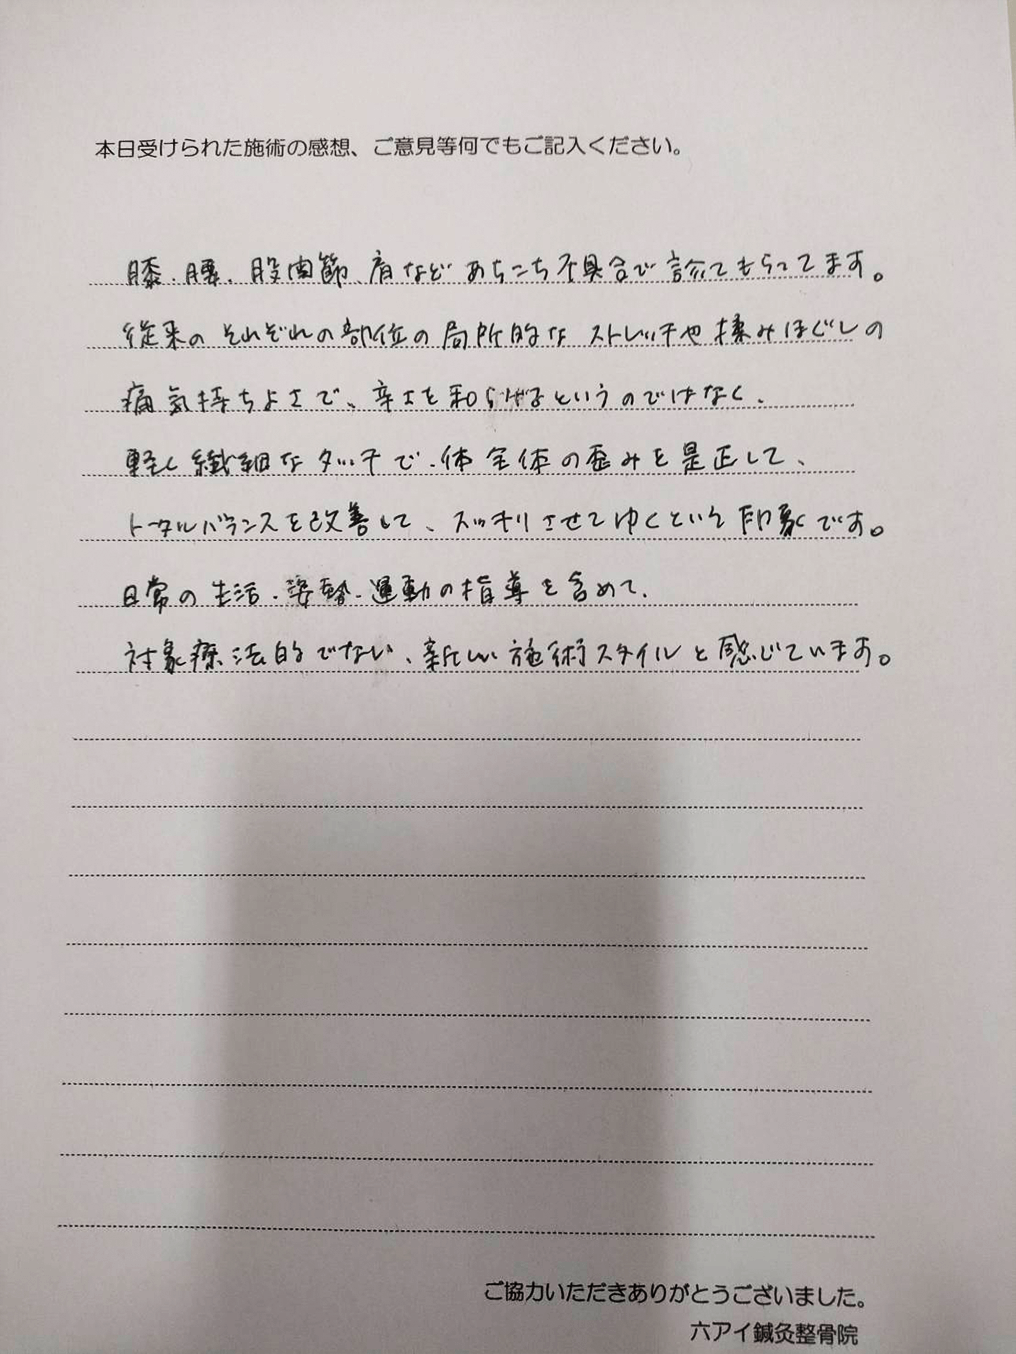 本日受けられた施術の感想、ご意見等何でもご記入ください。
膝、腰、股関節、肩などあちこち不具合で診てもらってます。
従来のそれぞれの部位の局所的なストレッチや揉みほぐしの
痛気持ちよさで、辛さを和らげるというのではなく、
軽く繊細なタッチで、体全体の歪みを是正して、
トータルバランスを改善して、スッキリさせてゆくという印象です。
日常の生活、姿勢、運動の指導を含めて、
対象療法的でない、新しい施術スタイルと感じています。
ご協力いただきありがとうございました。
六アイ鍼灸整骨院